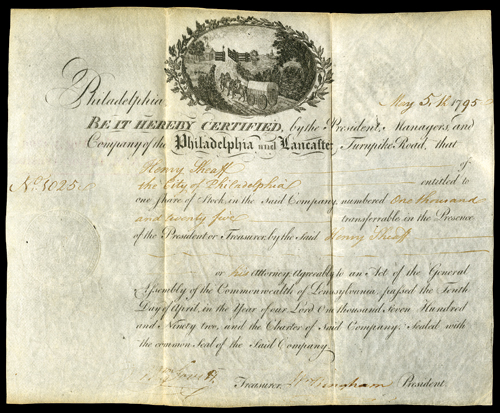 Philadelphia May 5th 1795
BE IT HEREBY CERTIFIED, by the President, Managers, and
Company of the Philadelphia and Lancaster Turnpike Road, that
Henry Sheaff of
No. 1025 the City of Philadelphia entitled to
one Share of Stock in the Said Company, numbered One thousand
and twenty five transferrable in the Presence
of the President or Treasurer, by the Said Henry Sheaff
or his Attorney. Agreeably to an Act of the General
Assembly of the Commonwealth of Pennsylvania passed the Ninth
Day of April, in the Year of our Lord One thousand Seven Hundred
and Ninety two, and the Charter of Said Company; Sealed with
the common Seal of the Said Company.
Treasurer. Wm Bingham President.